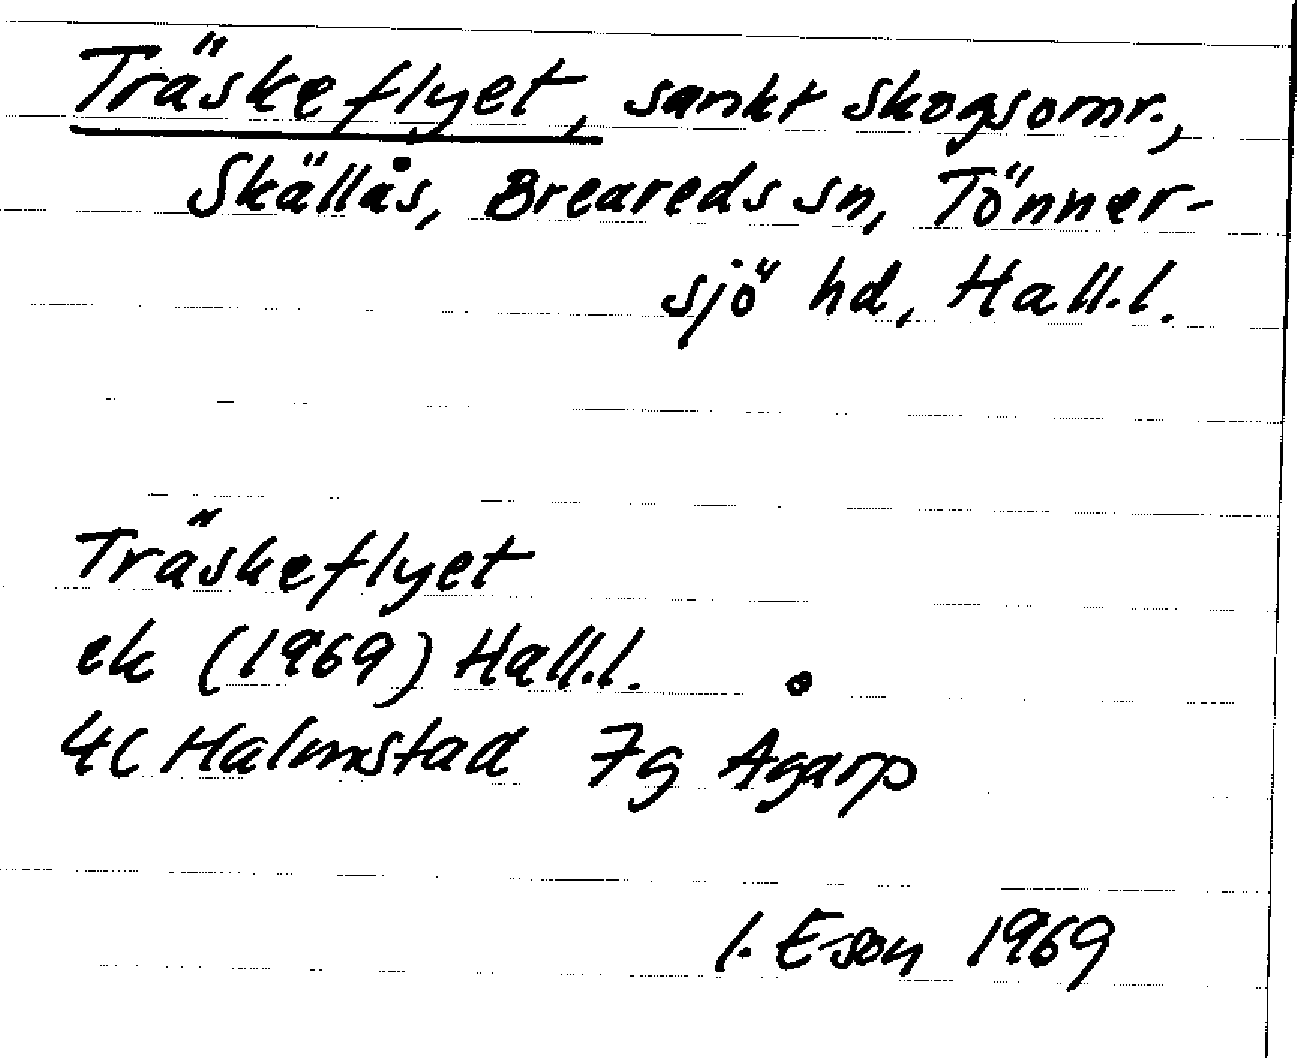 Träskeflyet, sankt skogsomr.,
Skällås, Breareds sn, Tönner-
sjö hd, Hall.l.
Träskeflyet
ek (1969) Hall.l.
4C Halmstad 7g Ågarp
I. Eson 1969